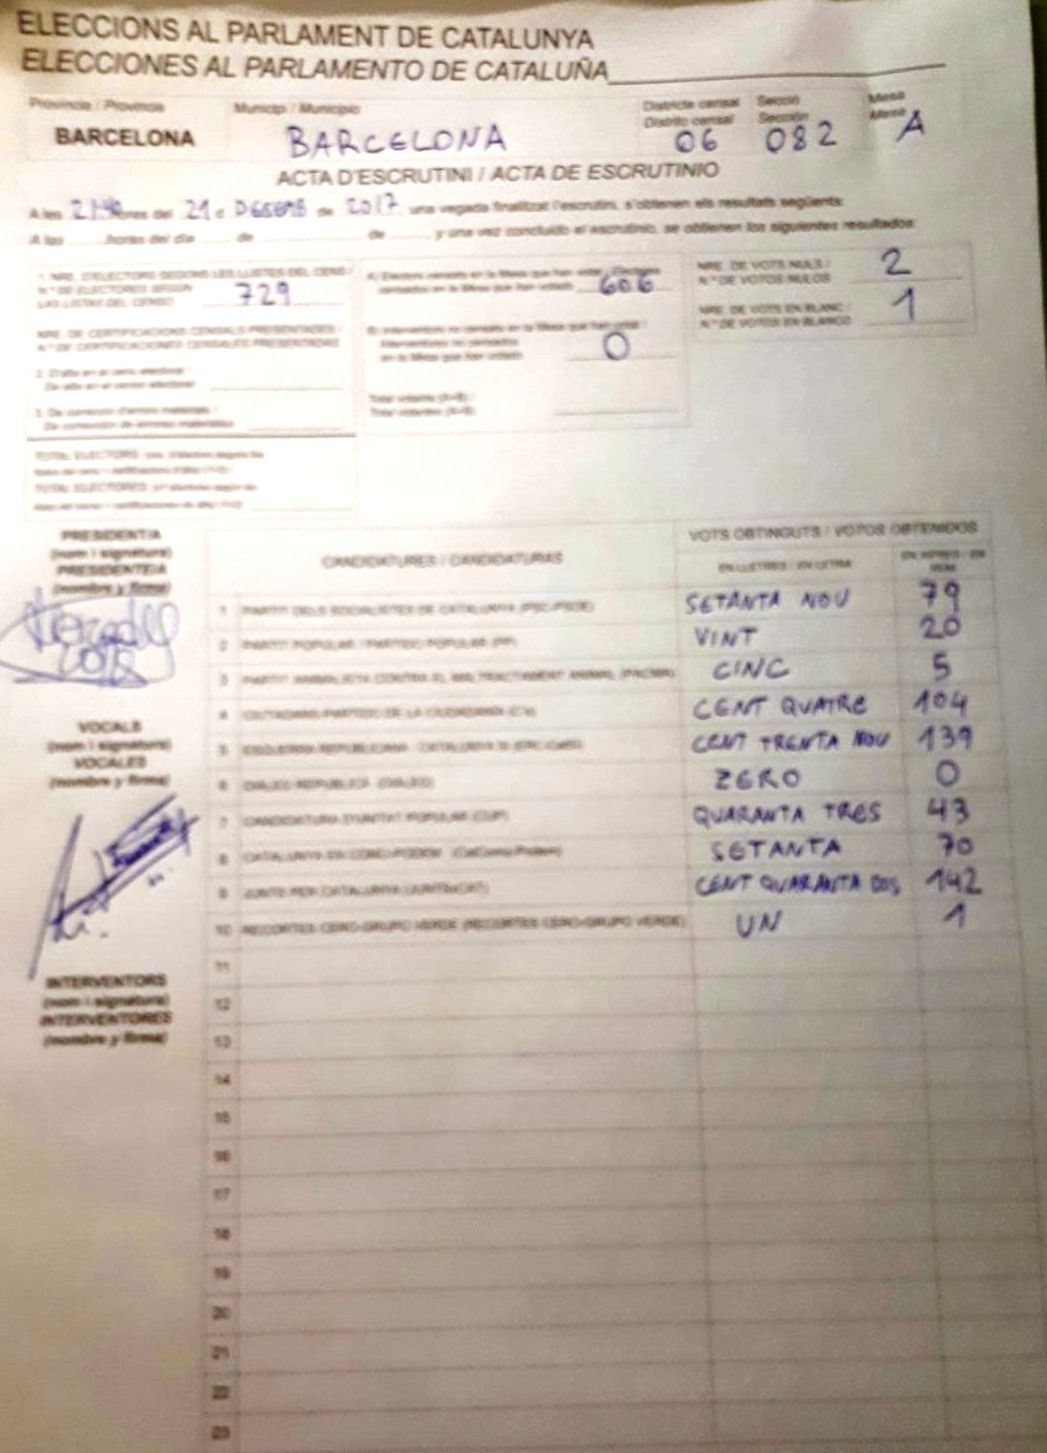 ELECCIONS AL PARLAMENT DE CATALUNYA
ELECCIONES AL PARLAMENTO DE CATALUÑA
Província / Provincia Municipi / Municipio Districte censal Secció Mesa
Distrito censal Sección Mesa
BARCELONA BARCELONA 06 082 A
ACTA D'ESCRUTINI / ACTA DE ESCRUTINIO
A les hores del 21 d de 2017 una vegada finalitzat l'escrutini, s'obtenen els resultats següents:
A las horas del día de de y una vez concluido el escrutinio, se obtienen los siguientes resultados:
1. NRE. D'ELECTORS SEGONS LES LLISTES DEL CENS /
N.º DE ELECTORES SEGÚN
LAS LISTAS DEL CENSO 729
NRE. DE CERTIFICACIONS CENSALS PRESENTADES /
N.º DE CERTIFICACIONES CENSALES PRESENTADAS
2. D'alta en el cens electoral /
De alta en el censo electoral
3. De correcció d'errors materials /
De corrección de errores materiales
A) Electors censats en la Mesa que han votat / Electores
censados en la Mesa que han votado 606
B) Interventors no censats en la Mesa que han votat /
Interventores no censados
en la Mesa que han votado 0
Total votants (A+B) /
Total votantes (A+B)
NRE. DE VOTS NULS /
N.º DE VOTOS NULOS 2
NRE. DE VOTS EN BLANC /
N.º DE VOTOS EN BLANCO 1
PRESIDENT/A
(nom i signatura)
PRESIDENTE/A
(nombre y firma)
VOCALS
(nom i signatura)
VOCALES
(nombre y firma)
INTERVENTORS
(nom i signatura)
INTERVENTORES
(nombre y firma)
CANDIDATURES / CANDIDATURAS VOTS OBTINGUTS / VOTOS OBTENIDOS
EN LLETRES / EN LETRA
1 PARTIT DELS SOCIALISTES DE CATALUNYA (PSC-PSOE) SETANTA NOU 79
2 PARTIT POPULAR / PARTIDO POPULAR (PP) VINT 20
3 PARTIT ANIMALISTA CONTRA EL MALTRACTAMENT ANIMAL (PACMA) CINC 5
4 CIUTADANS-PARTIDO DE LA CIUDADANÍA (C's) CENT QUATRE 104
5 ESQUERRA REPUBLICANA - CATALUNYA SÍ (ERC-CatSí) CENT TRENTA NOU 139
6 DIÀLEG REPÚBLICA (DIÀLEG) ZERO 0
7 CANDIDATURA D'UNITAT POPULAR (CUP) QUARANTA TRES 43
8 CATALUNYA EN COMÚ-PODEM (CatComú-Podem) SETANTA 70
9 JUNTS PER CATALUNYA (JUNTSxCAT) CENT QUARANTA DOS 142
10 RECORTES CERO-GRUPO VERDE (RECORTES CERO-GRUPO VERDE) UN 1
11
12
13
14
15
16
17
18
19
20
21
22
23